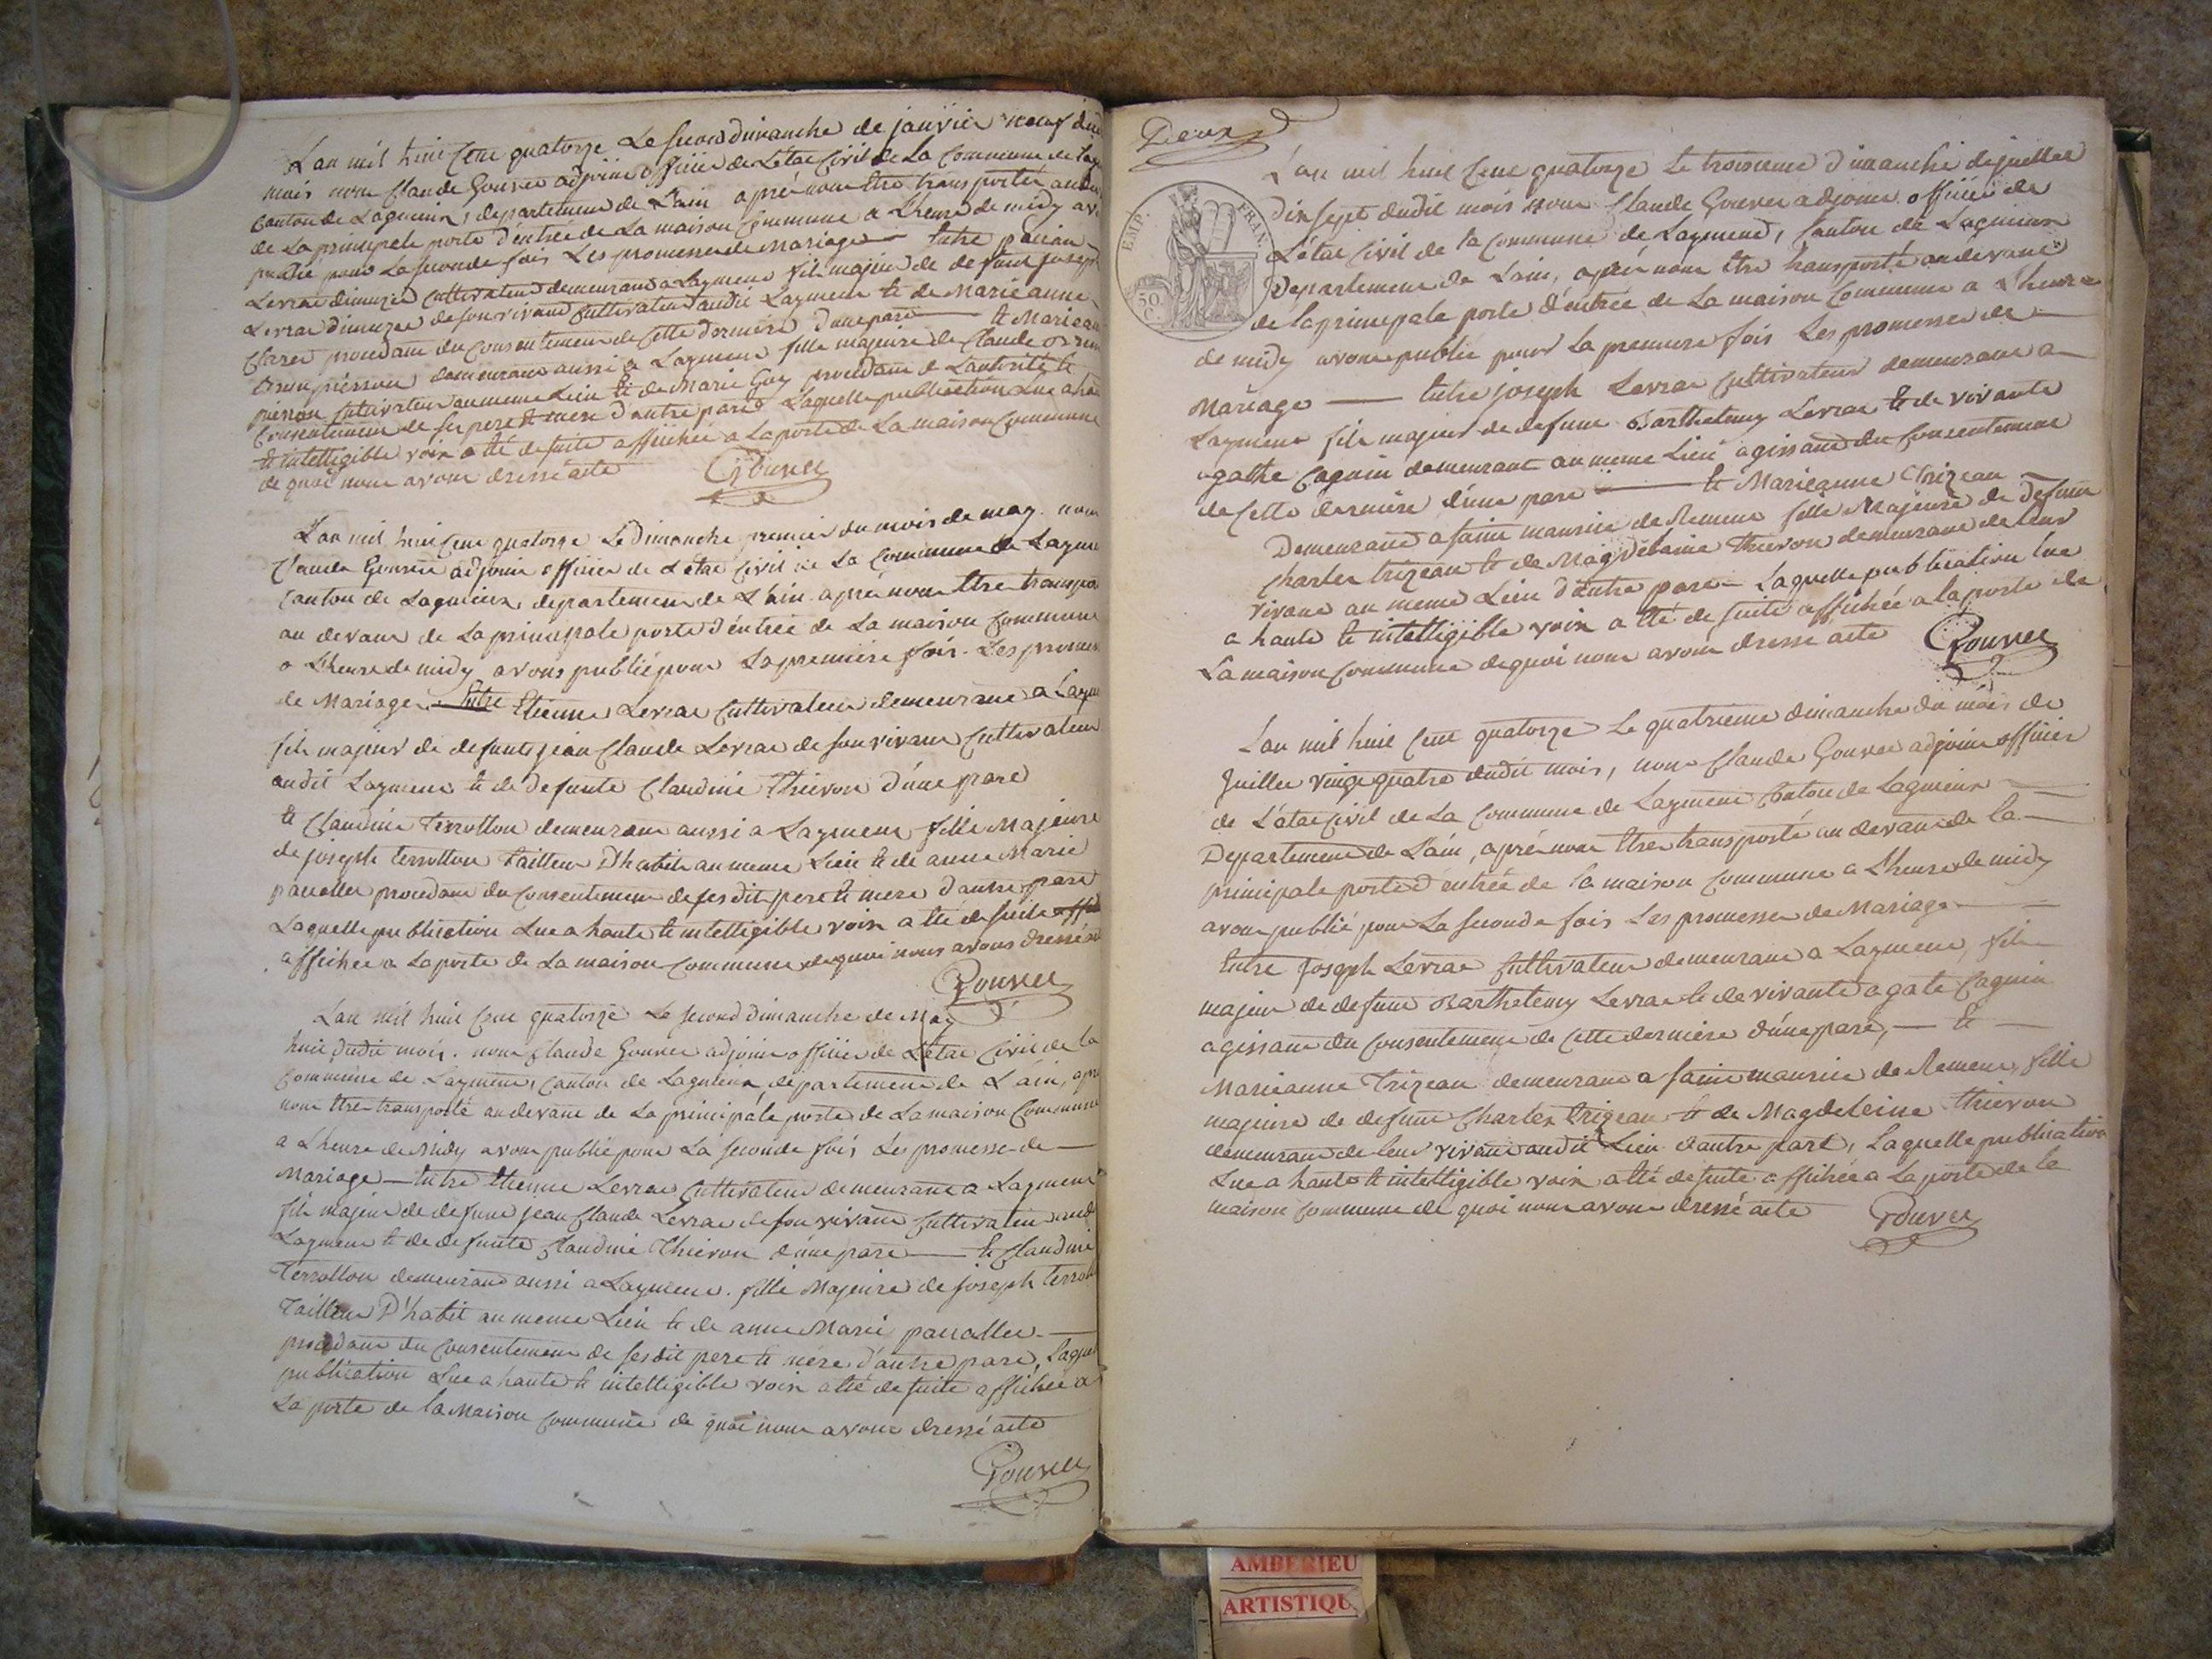 L'an mil huit Cent quatorze Le second dimanche de janvier neuf dud
mois nous Claude Gouvee adjoint officier de L'état Civil de La Commune de Lagn
Canton de Lagnieux, département de L'ain après nous être transporté au dev
de La principale porte d'entrée de La maison Commune a L'heure de midy av
publié pour La seconde fois Les promesses de Mariage — Entre
Levrat cultivateur demeurant a Laymene fils majeur de defunt joseph
Levrat de son vivant Cultivateur audit Laymene et de Marieanne
procedant du Consentement de Cette dernière d'une part — et Marieann
demeurant aussi a Laymene fille majeure de Claude
cultivateur au meme Lieu et de Marie Guy procedant de L'autorité et
Consentement de ses pere et mere d'autre part Laquelle publication Lue a hau
et intelligible voix a été de suite affichée a La porte de La maison Commune
de quoi nous avons dressé acte Gouvee
L'an mil huit Cent quatorze Le Dimanche premier du mois de may nous
Claude Gouvee adjoint officier de L'état Civil de La Commune de Layme
Canton de Lagnieux, departement de L'ain après nous être transpor
au devant de La principale porte d'entrée de La maison Commune
a L'heure de midy avons publié pour La premiere fois Les promes
de Mariage — Entre Etienne Levrat Cultivateur demeurant a Layme
fils majeur de defunt jean Claude Levrat de son vivant Cultivateur
audit Laymene et de defunte Claudine Thievon d'une part
et Claudine Terrollon demeurant aussi a Laymene fille Majeure
de joseph terrollon tailleur D'habit au meme Lieu et de anne Marie
procedant du Consentement de ses dit pere et mere d'autre part
Laquelle publication Lue a haute et intelligible voix a été de suite
affichée a La porte de La maison Commune de quoi nous avons dressé
Gouvee
L'an mil huit Cent quatorze Le second dimanche de May
huit dudit mois. nous Claude Gouvee adjoint officier de L'état Civil de la
Commune de Laymene, Canton de Lagnieux, departement de L'ain, apr
nous être transporté au devant de La principale porte de La maison Commune
a L'heure de Midy avons publié pour La seconde fois Les promesse de —
Mariage — Entre Etienne Levrat Cultivateur demeurant a Laymene
fils majeur de defunt jean Claude Levrat de son vivant Cultivateur aud
Laymene et de defunte Claudine Thievon d'une part — et Claudine
Terrollon demeurant aussi a Laymene. fille Majeure de joseph terroll
Tailleur D'habit au meme Lieu et de anne Marie —
procedant du Consentement de ses dit pere et mère d'autre part, Laquel
publication Lue a haute et intelligible voix a été de suite affichée a
La porte de la Maison Commune de quoi nous avons dressé acte
Gouvee
Deux
L'an mil huit Cent quatorze Le troisieme dimanche de juillet
EMP. FRAN.
50 C.
Dix sept dudit mois nous Claude Gouvee adjoint officier de
L'état Civil de la Commune de Laymene, Canton de Lagnieux
Departement de L'ain, après nous être transporté au devant
de la principale porte d'entrée de La maison Commune a L'heure
de midy avons publié pour La premiere fois Les promesses de —
Mariage — Entre joseph Levrat Cultivateur demeurant a
Laymene fils majeur de defunt Barthelemy Levrat et de vivante
agathe Caguin demeurant au meme Lieu agissant du Consentement
de Cette derniere d'une part — et Marieanne Trizean
Demeurant a saint maurice de Remene fille Majeure de Defunt
Charles trizean et de Magdelaine thievon demeurant de leur
vivant au meme Lieu d'autre part — Laquelle publication lue
a haute et intelligible voix a été de suite affichée a la porte de
La maison Commune de quoi nous avons dressé acte Gouvee
L'an mil huit Cent quatorze Le quatrieme dimanche du mois de
Juillet vingt quatre dudit mois, nous Claude Gouvee adjoint officier
de L'état Civil de La Commune de Laymene Canton de Lagnieux —
Departement de L'ain, après nous être transporté au devant de la —
principale porte d'entrée de la maison Commune a L'heure de midy
avons publié pour La seconde fois Les promesses de Mariage —
Entre Joseph Levrat Cultivateur demeurant a Laymene, fils
majeur de defunt Barthelemy Levrat et de vivante agate Caguin
agissant du Consentement de Cette derniere d'une part, — et —
Marieanne Trizean demeurant a saint maurice de Remene, fille
majeure de defunt Charles trizean et de Magdeleine thievon
demeurant de leur vivant audit Lieu d'autre part, Laquelle publication
Lue a haute et intelligible voix a été de suite affichée a La porte de la
maison Commune de quoi nous avons dressé acte Gouvee
AMBERIEU
ARTISTIQU